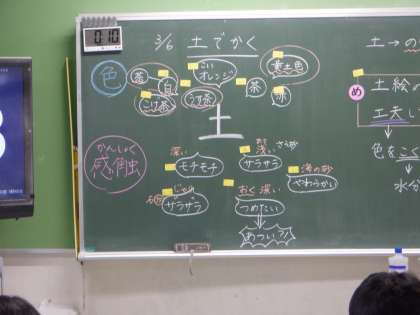 010
3/6 土でかく
色
茶
白
こげ茶
こい
オレンジ
うす茶
黄土色
茶
赤
土
かんしょく
感触
深い
モチモチ
浅い さら砂
サラサラ
海の砂
やわらかい
じゃり
サラザラ
おく深い
つめたい
あつい?!
土→の
め
土絵の
工夫し
色をこく
水分